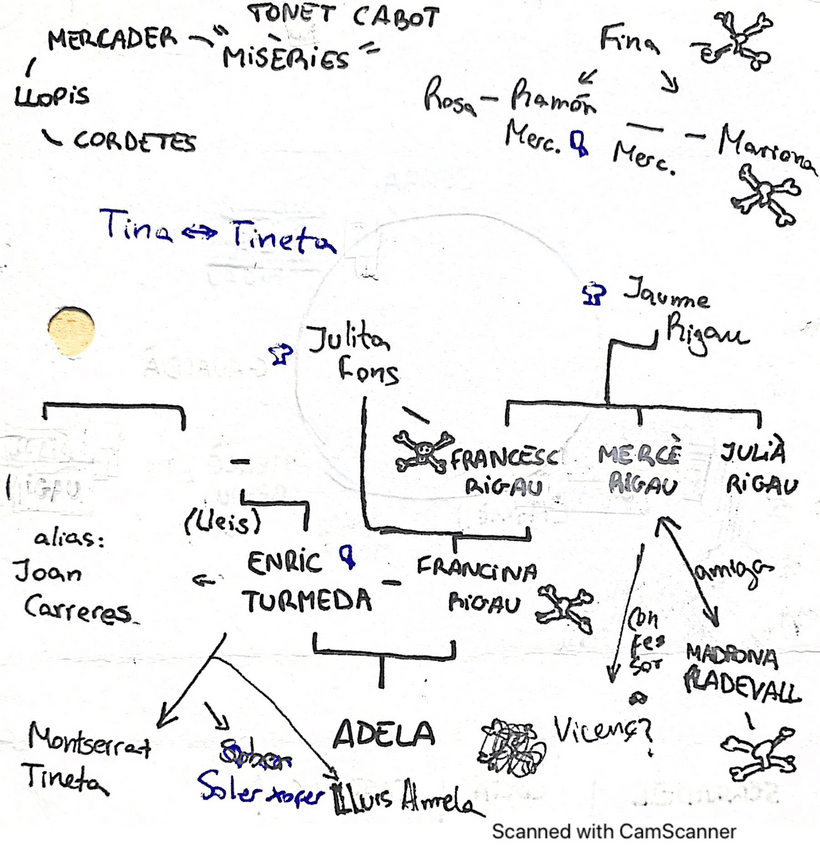 TONET CABOT
MERCADER - "MISÈRIES"
LLOPIS
CORDETES
Fina
Rosa - Ramón
Merc.
Merc.
- Marrona
Tina ⇔ Tineta
Jaume
Rigau
Julita
Fons
FRANCESC
RIGAU
MERCÈ
RIGAU
JULIÀ
RIGAU
alias:
Joan
Carreres
(Lleis)
ENRIC
TURMEDA
-
FRANCINA
RIGAU
amiga
con
fes
sor
MADRONA
PLADEVALL
Vicenç?
ADELA
Montserrat
Tineta
Soler xofer
Lluis Almela
Scanned with CamScanner